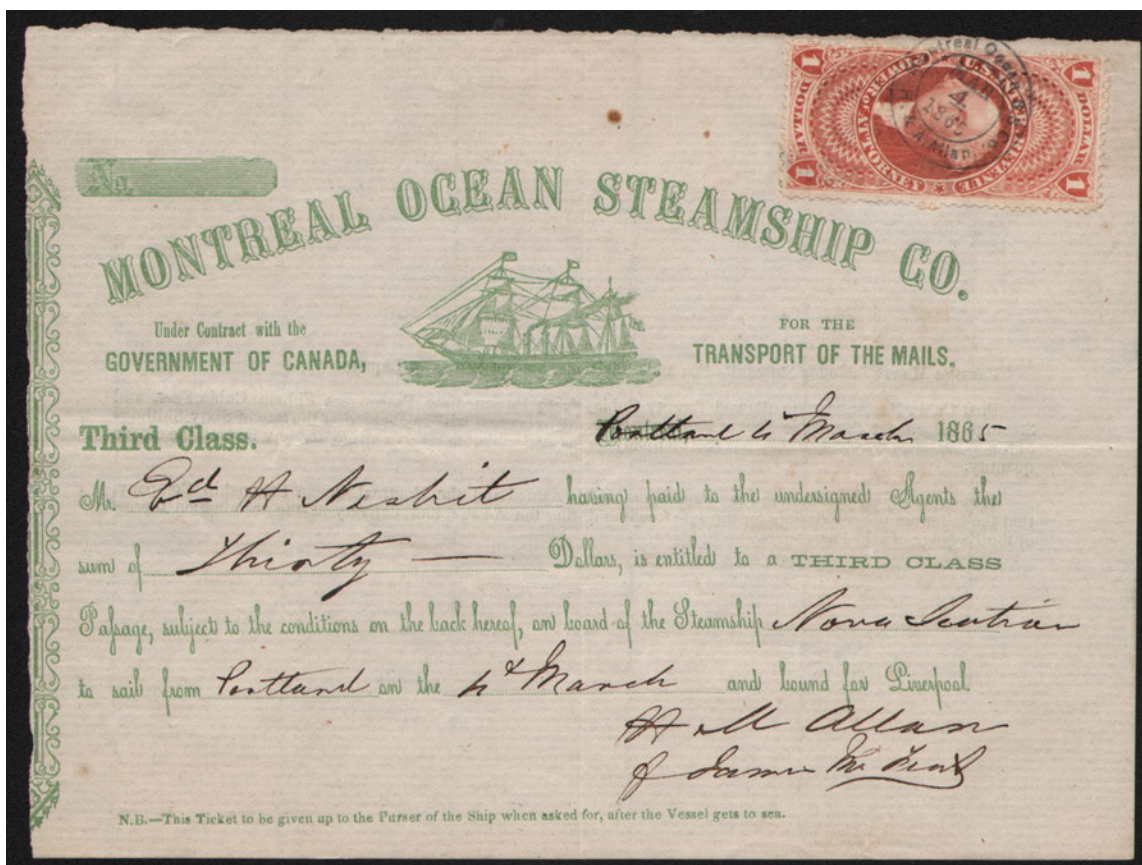 1 DOLLAR U.S. INTER. REVENUE 1 DOLLAR
POWER OF ATTORNEY
MAR
4
1865
H. & A. Allan
No.
MONTREAL OCEAN STEAMSHIP CO.
Under Contract with the
GOVERNMENT OF CANADA,
FOR THE
TRANSPORT OF THE MAILS.
Third Class. Portland 4 March 1865
Mr. Ed H Nesbit having paid to the undersigned Agents the
sum of Thirty — Dollars, is entitled to a THIRD CLASS
Passage, subject to the conditions on the back hereof, on board of the Steamship Nova Scotian
to sail from Portland on the 4th March and bound for Liverpool.
Allan
James
N.B.—This Ticket to be given up to the Purser of the Ship when asked for, after the Vessel gets to sea.